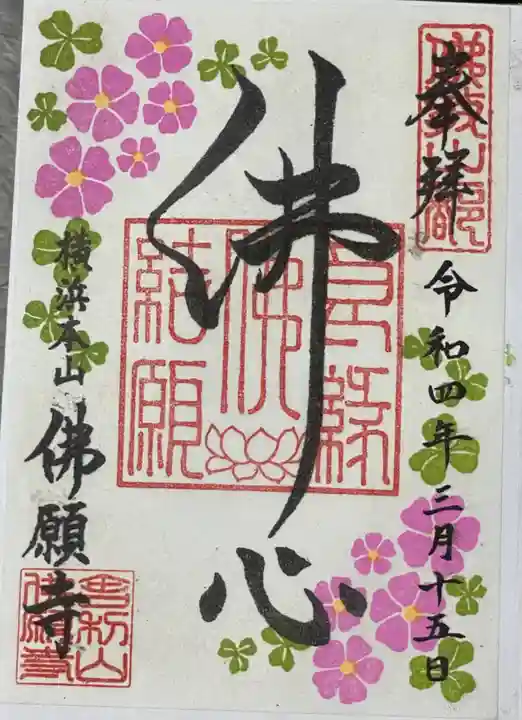 奉拝
令和四年三月十五日
佛心
結願
横浜本山
佛願寺